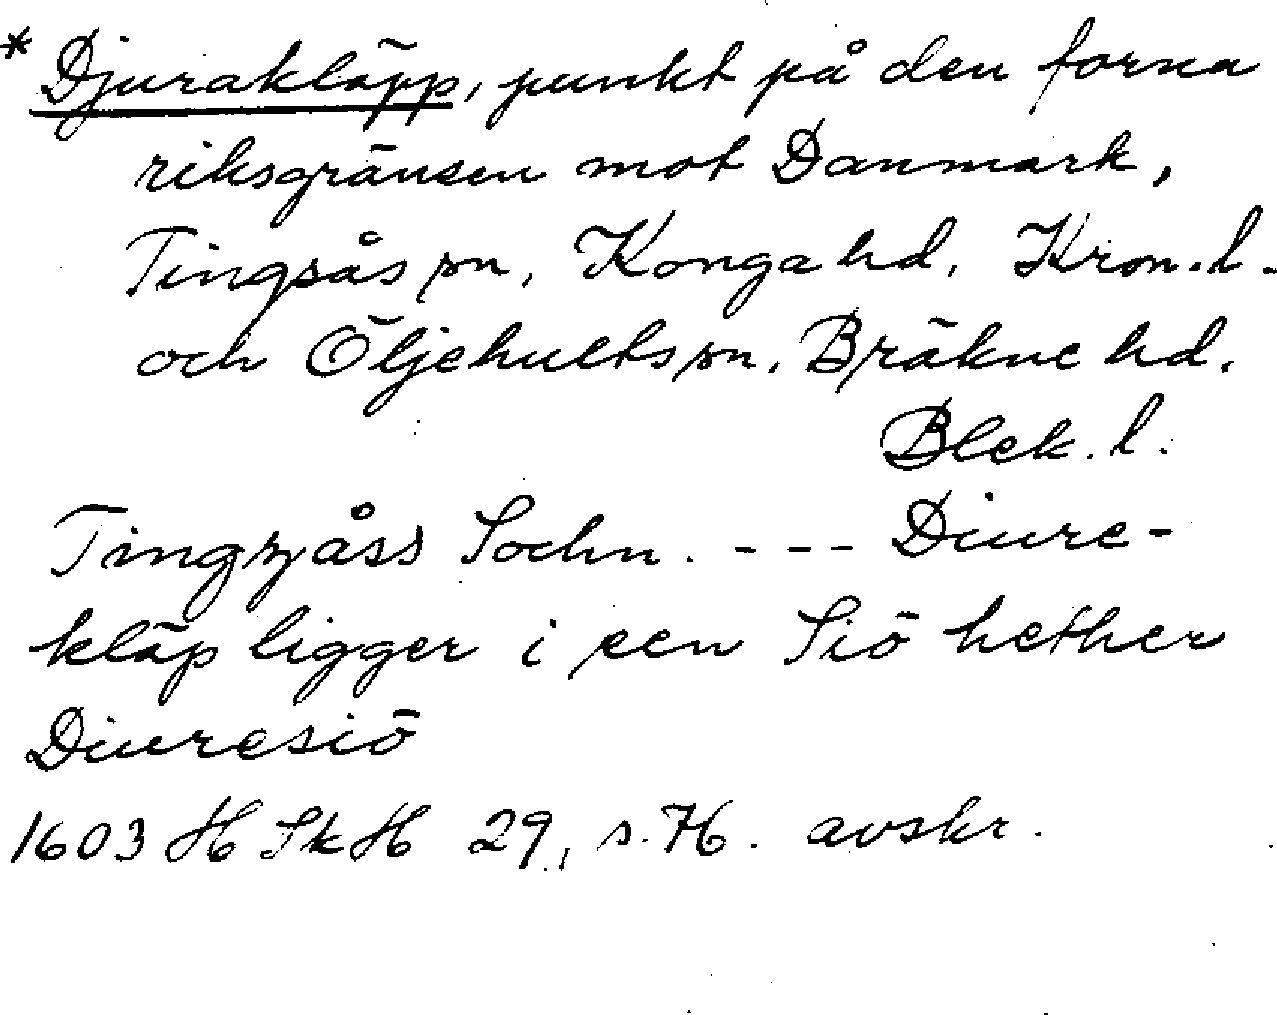 * Djurakläpp, punkt på den forna
riksgränsen mot Danmark,
Tingsås sn, Konga hd, Kron. l.
och Öljehults sn, Bräkne hd.
Blek. l.
Tingzåss Sochn. - - - Diure-
kläp ligger i een Siö hether
Diuresiö
1603 HSkH 29, s. 76. avskr.